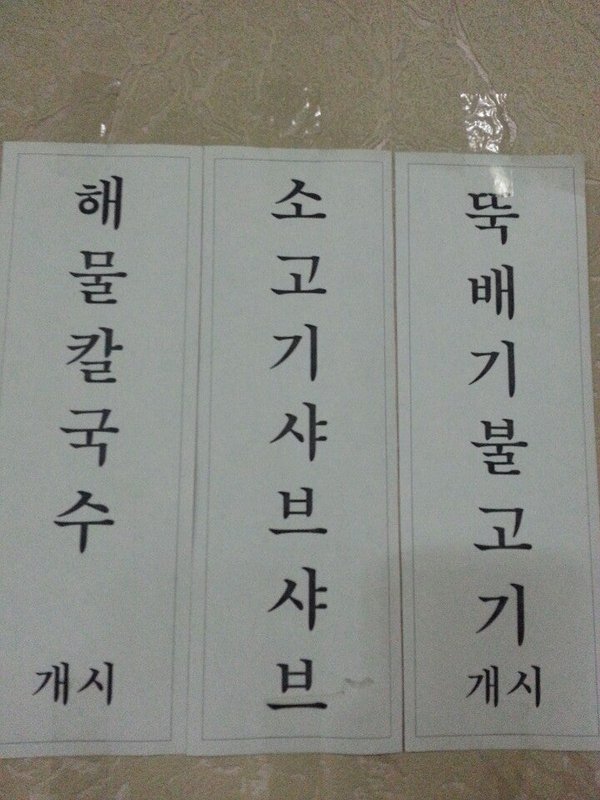 해물칼국수
개시
소고기샤브샤브
뚝배기불고기
개시